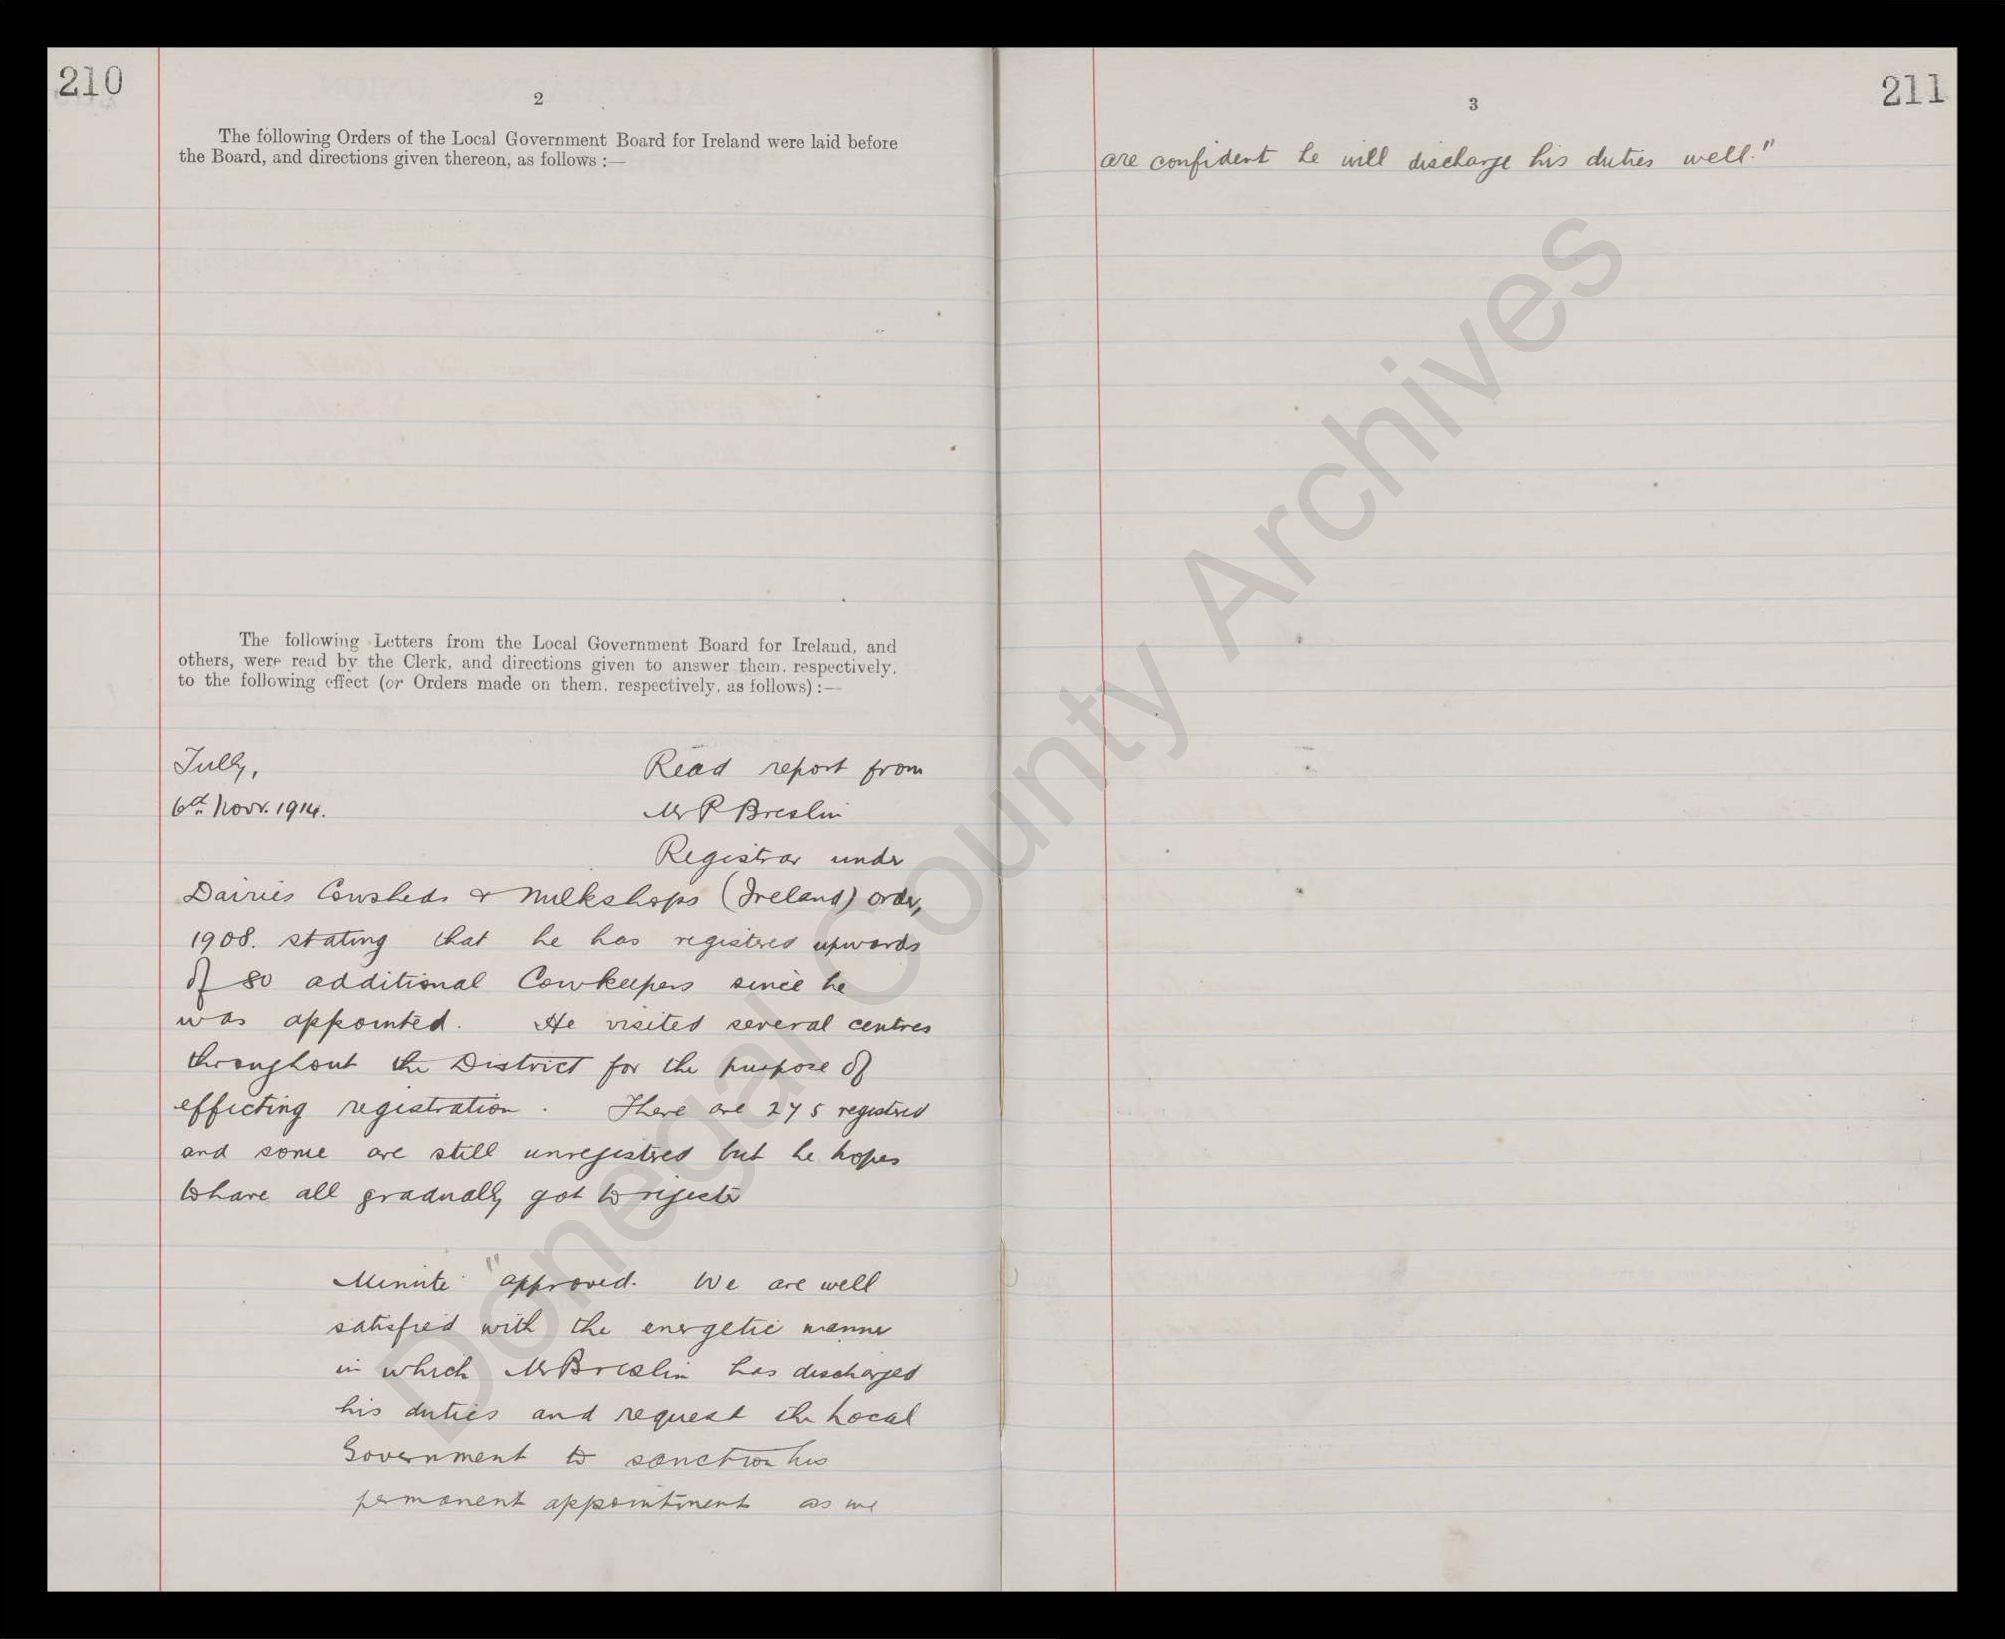 210
2
The following Orders of the Local Government Board for Ireland were laid before
the Board, and directions given thereon, as follows :—
The following Letters from the Local Government Board for Ireland, and
others, were read by the Clerk, and directions given to answer them, respectively,
to the following effect (or Orders made on them, respectively, as follows) :—
Tully,
6th Novr. 1914.
Read report from
Mr P Breslin
Registrar under
Dairies Cowsheds & Milkshops (Ireland) order,
1908. stating that he has registered upwards
of 80 additional Cowkeepers since he
was appointed. He visited several centres
throughout the District for the purpose of
effecting registration. There are 275 registered
and some are still unregistered but he hopes
to have all gradually got to register
Minute "approved. We are well
satisfied with the energetic manner
in which Mr Breslin has discharged
his duties and request the Local
Government to sanction his
permanent appointment as we
211
3
are confident he will discharge his duties well."
Donegal County Archives